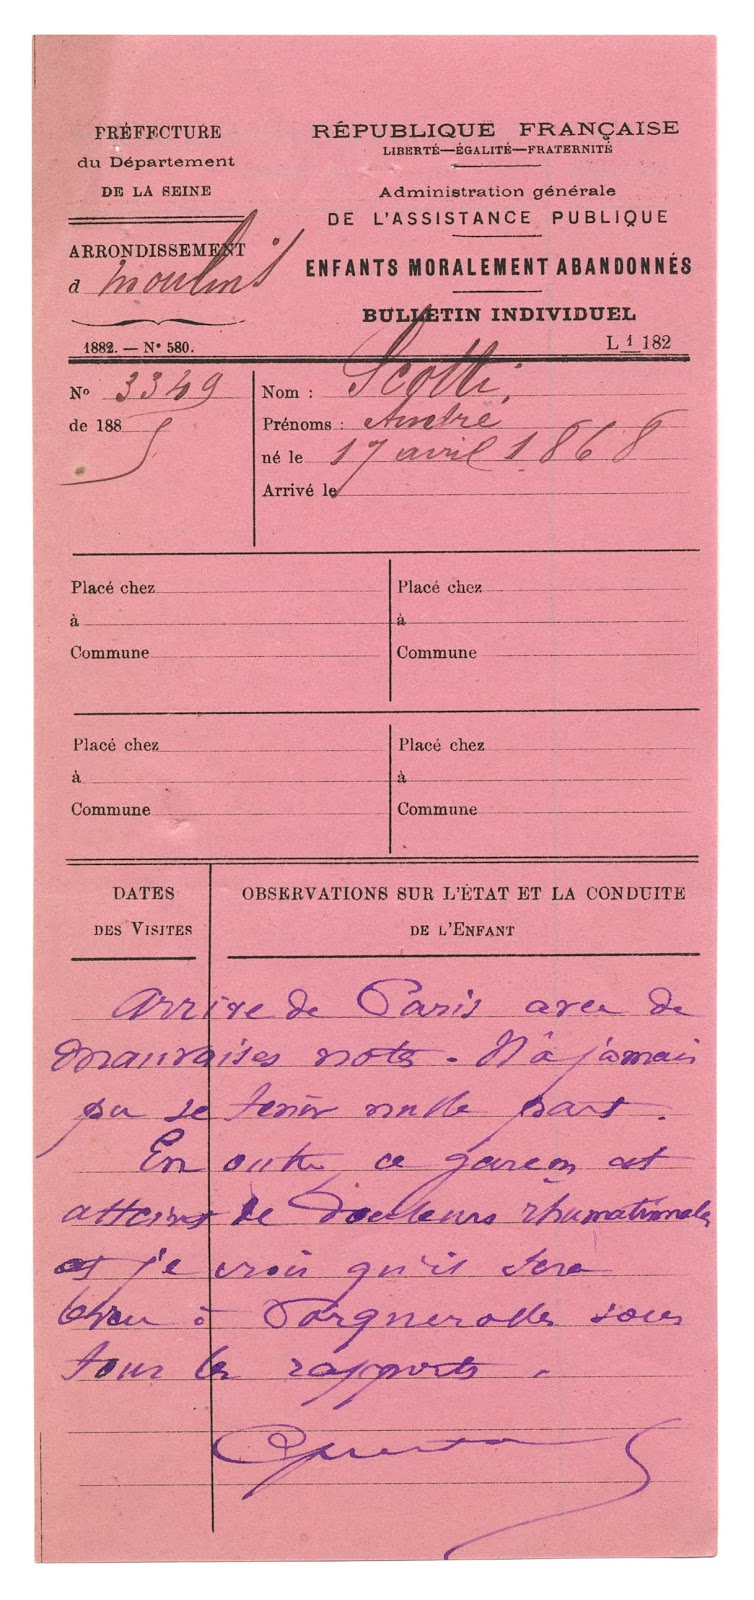 PRÉFECTURE
du Département
DE LA SEINE
ARRONDISSEMENT
d Moulins
1882. — N° 580.
RÉPUBLIQUE FRANÇAISE
LIBERTÉ—ÉGALITÉ—FRATERNITÉ
Administration générale
DE L'ASSISTANCE PUBLIQUE
ENFANTS MORALEMENT ABANDONNÉS
BULLETIN INDIVIDUEL
L 1 182
No 3349
de 1885
Nom : Scotti,
Prénoms : André
né le 17 avril 1868
Arrivé le
Placé chez
à
Commune
Placé chez
à
Commune
Placé chez
à
Commune
Placé chez
à
Commune
DATES
DES VISITES
OBSERVATIONS SUR L'ÉTAT ET LA CONDUITE
DE L'ENFANT
Arrive de Paris avec de
mauvaises notes. N'a jamais
pu se tenir nulle part.
En outre, ce garçon est
atteint de douleurs rhumatismales
et je crois qu'il sera
bien à Porquerolles sous
tous les rapports.